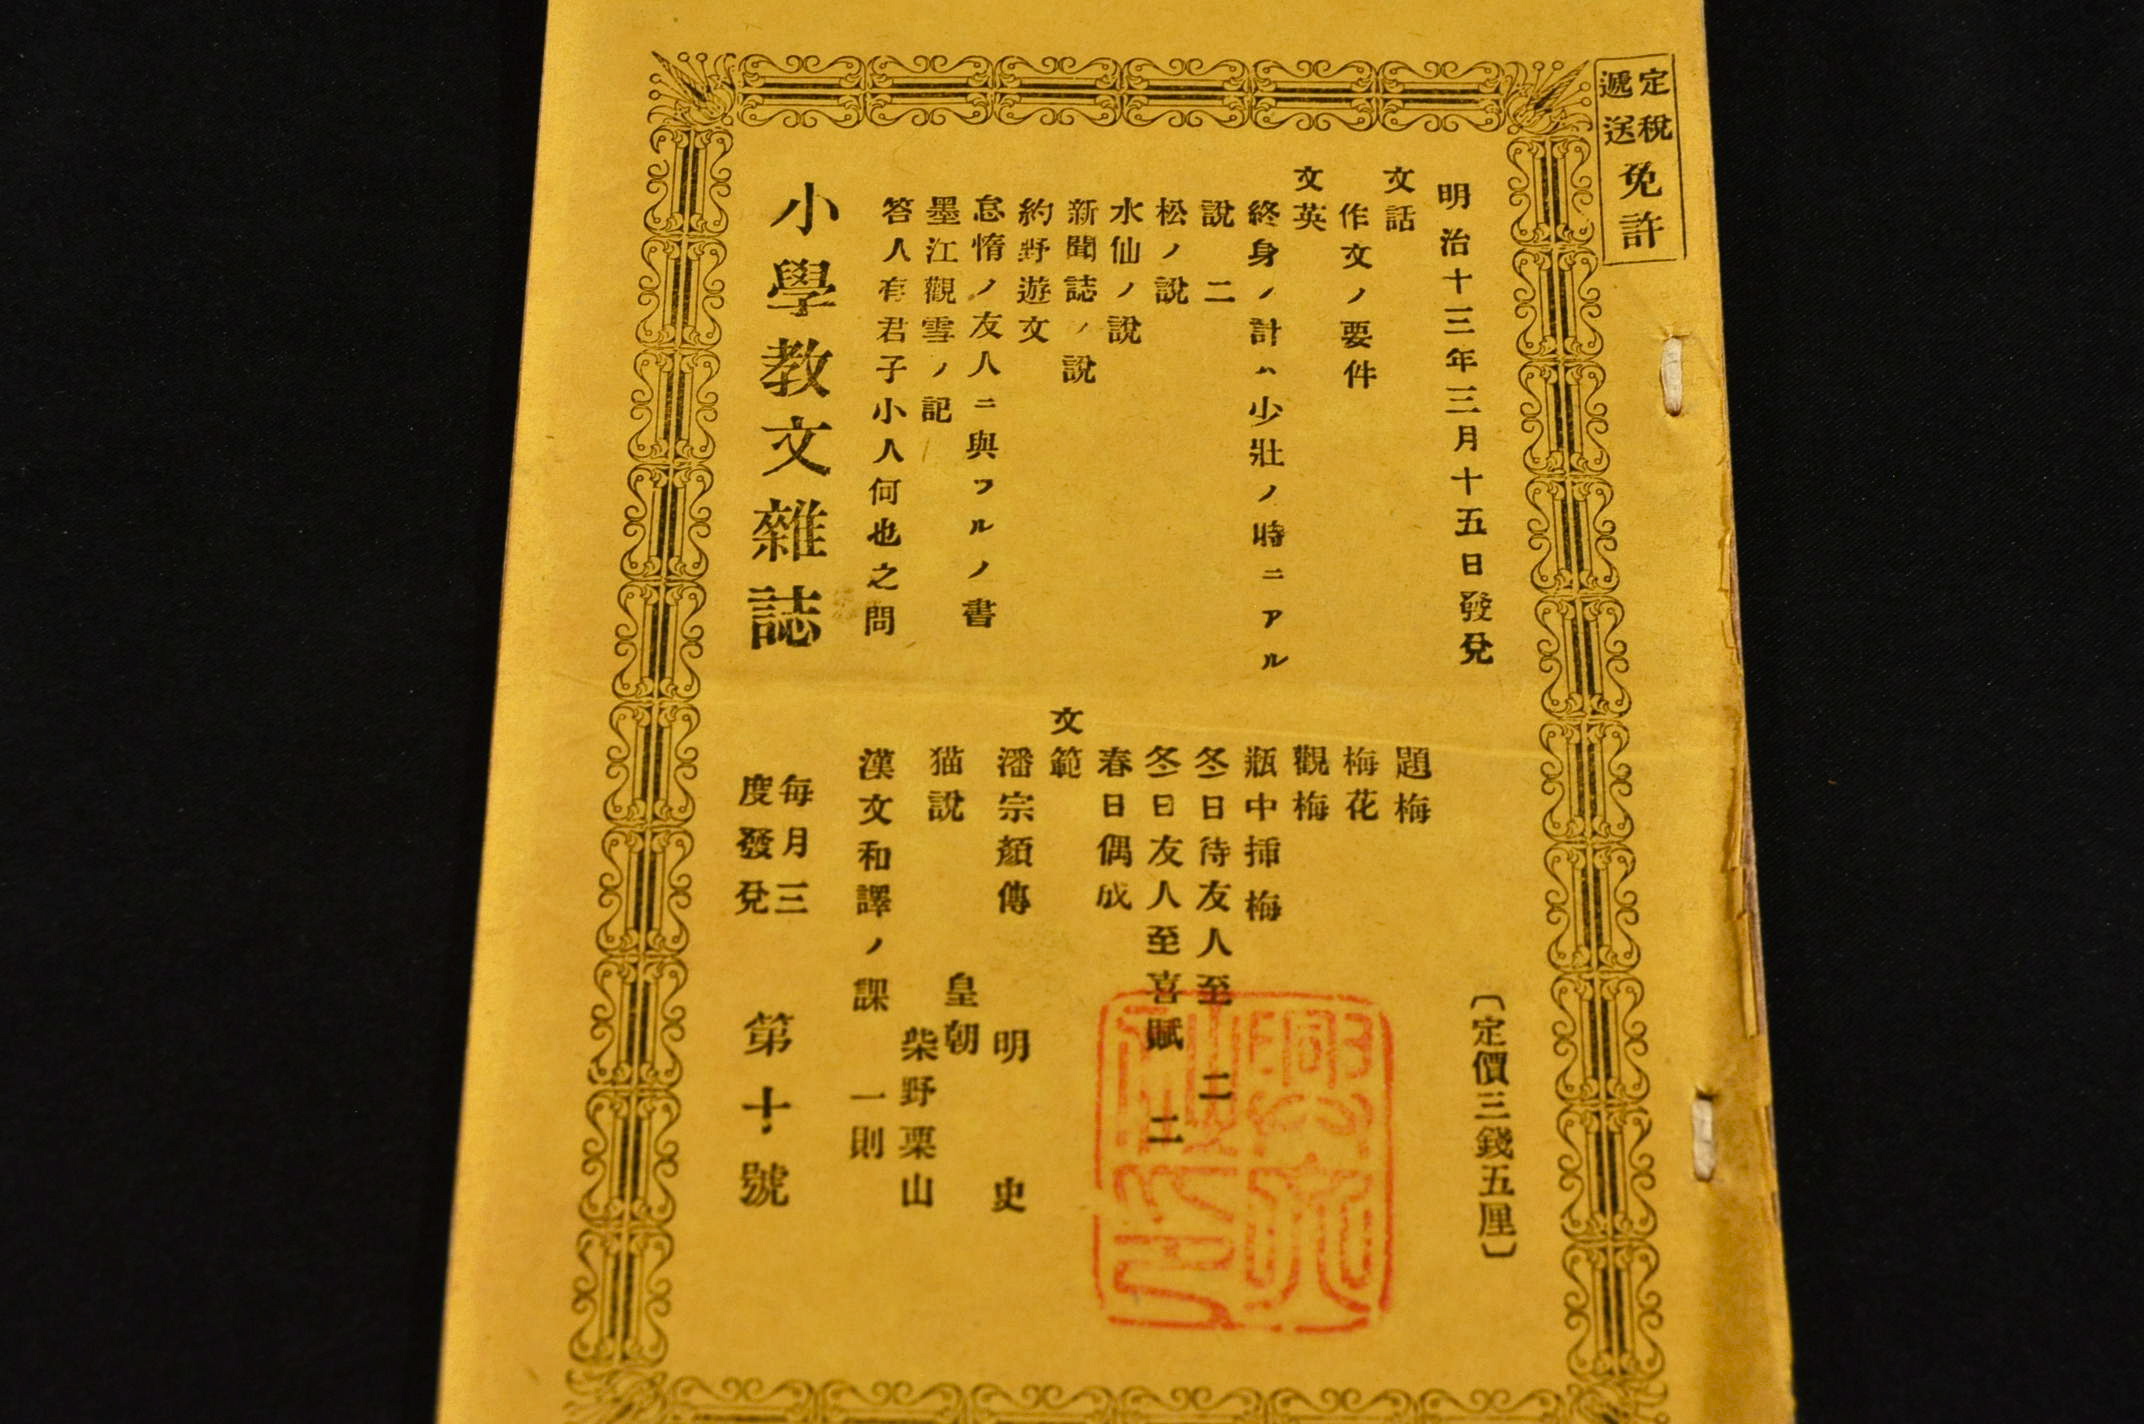 定稅
遞送
免許
明治十三年三月十五日發兌
〔定價三錢五厘〕
文話
作文ノ要件
文英
終身ノ計ハ少壯ノ時ニアル
說 二
松ノ說
水仙ノ說
新聞誌ノ說
約野遊文
怠惰ノ友人ニ與フルノ書
墨江觀雪ノ記
答人有君子小人何也之問
題梅
梅花
觀梅
瓶中揷梅
冬日待友人至 二
冬日友人至喜賦 二
春日偶成
文範
潘宗顏傳 明史
猫說 皇朝 柴野栗山
漢文和譯ノ課 一則
小學教文雜誌
每月三
度發兌
第十號